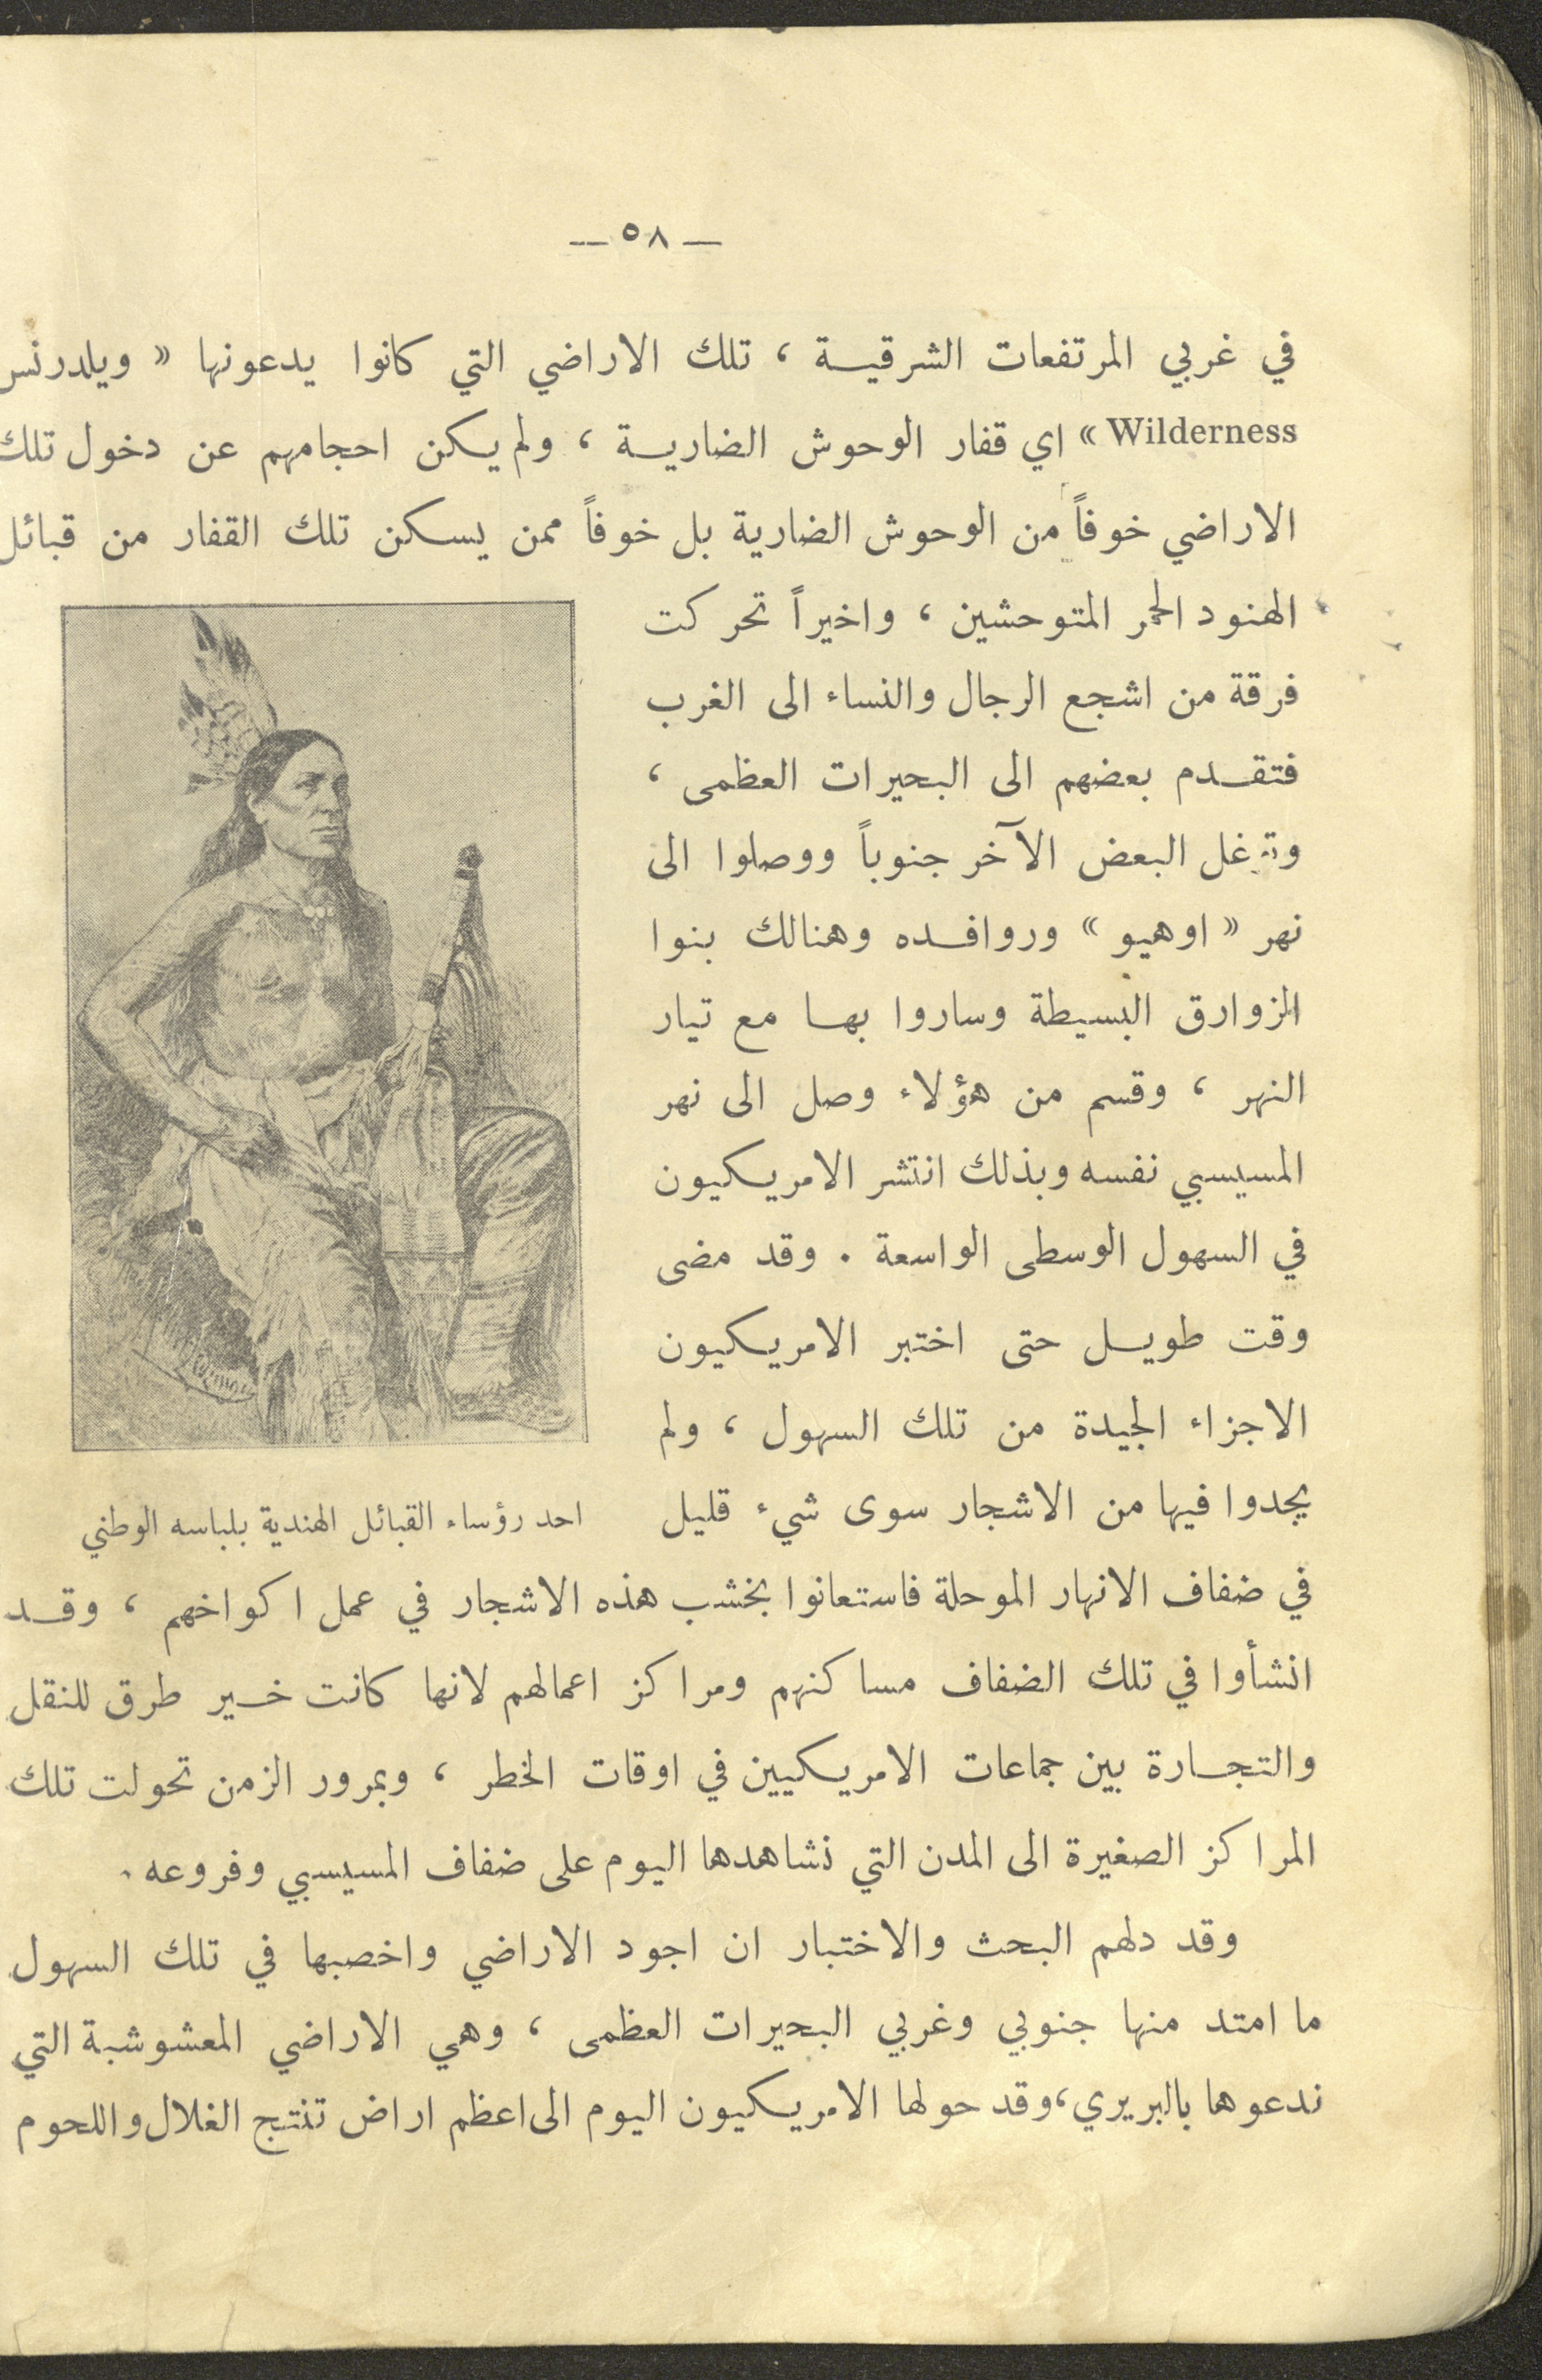 — ٥٨ —
في غربي المرتفعات الشرقية ، تلك الاراضي التي كانوا يدعونها « ويلدرنس
Wilderness » اي قفار الوحوش الضارية ، ولم يكن احجامهم عن دخول تلك
الاراضي خوفاً من الوحوش الضارية بل خوفاً ممن يسكن تلك القفار من قبائل
الهنود الحمر المتوحشين ، واخيراً تحركت
فرقة من اشجع الرجال والنساء الى الغرب
فتقدم بعضهم الى البحيرات العظمى ،
وتوغل البعض الآخر جنوباً ووصلوا الى
نهر « اوهيو » وروافده وهنالك بنوا
الزوارق البسيطة وساروا بها مع تيار
النهر ، وقسم من هؤلاء وصل الى نهر
المسيسبي نفسه وبذلك انتشر الامريكيون
في السهول الوسطى الواسعة . وقد مضى
وقت طويل حتى اختبر الامريكيون
الاجزاء الجيدة من تلك السهول ، ولم
يجدوا فيها من الاشجار سوى شيء قليل
احد رؤساء القبائل الهندية بلباسه الوطني
في ضفاف الانهار الموحلة فاستعانوا بخشب هذه الاشجار في عمل اكواخهم ، وقد
انشأوا في تلك الضفاف مساكنهم ومراكز اعمالهم لانها كانت خير طرق للنقل
والتجارة بين جماعات الامريكيين في اوقات الخطر ، وبمرور الزمن تحولت تلك
المراكز الصغيرة الى المدن التي نشاهدها اليوم على ضفاف المسيسبي وفروعه .
وقد دلهم البحث والاختبار ان اجود الاراضي واخصبها في تلك السهول
ما امتد منها جنوبي وغربي البحيرات العظمى ، وهي الاراضي المعشوشبة التي
ندعوها بالبريري، وقد حولها الامريكيون اليوم الى اعظم اراض تنتج الغلال واللحوم